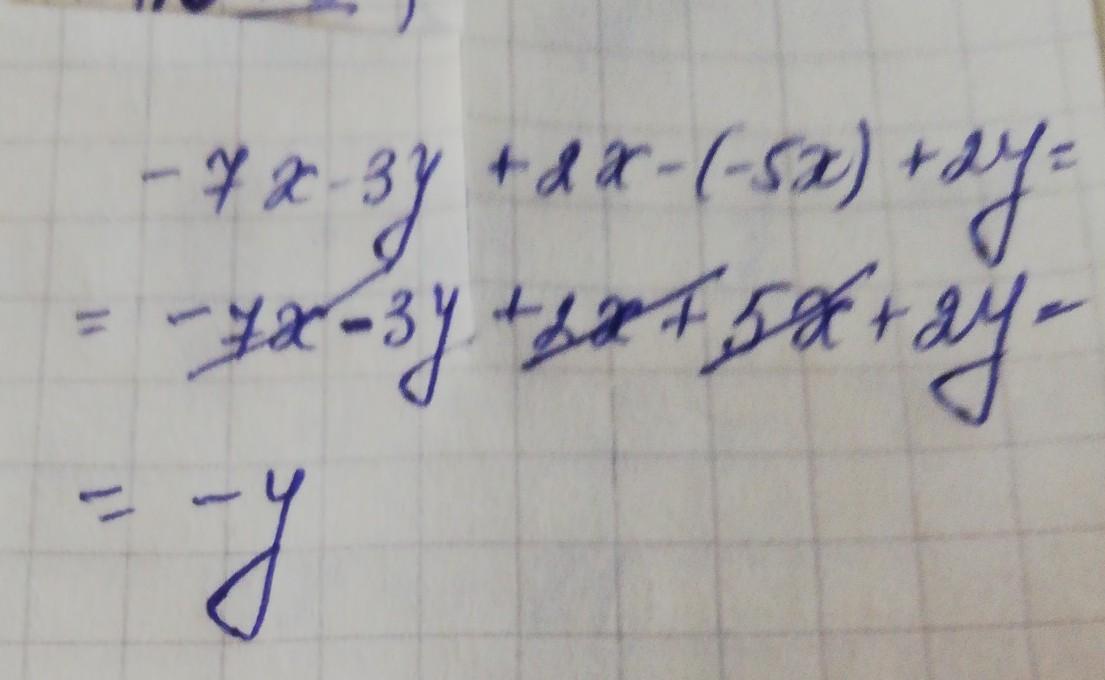 -7x-3y+2x-(-5x)+2y=
=-7x-3y+2x+5x+2y=
=-y